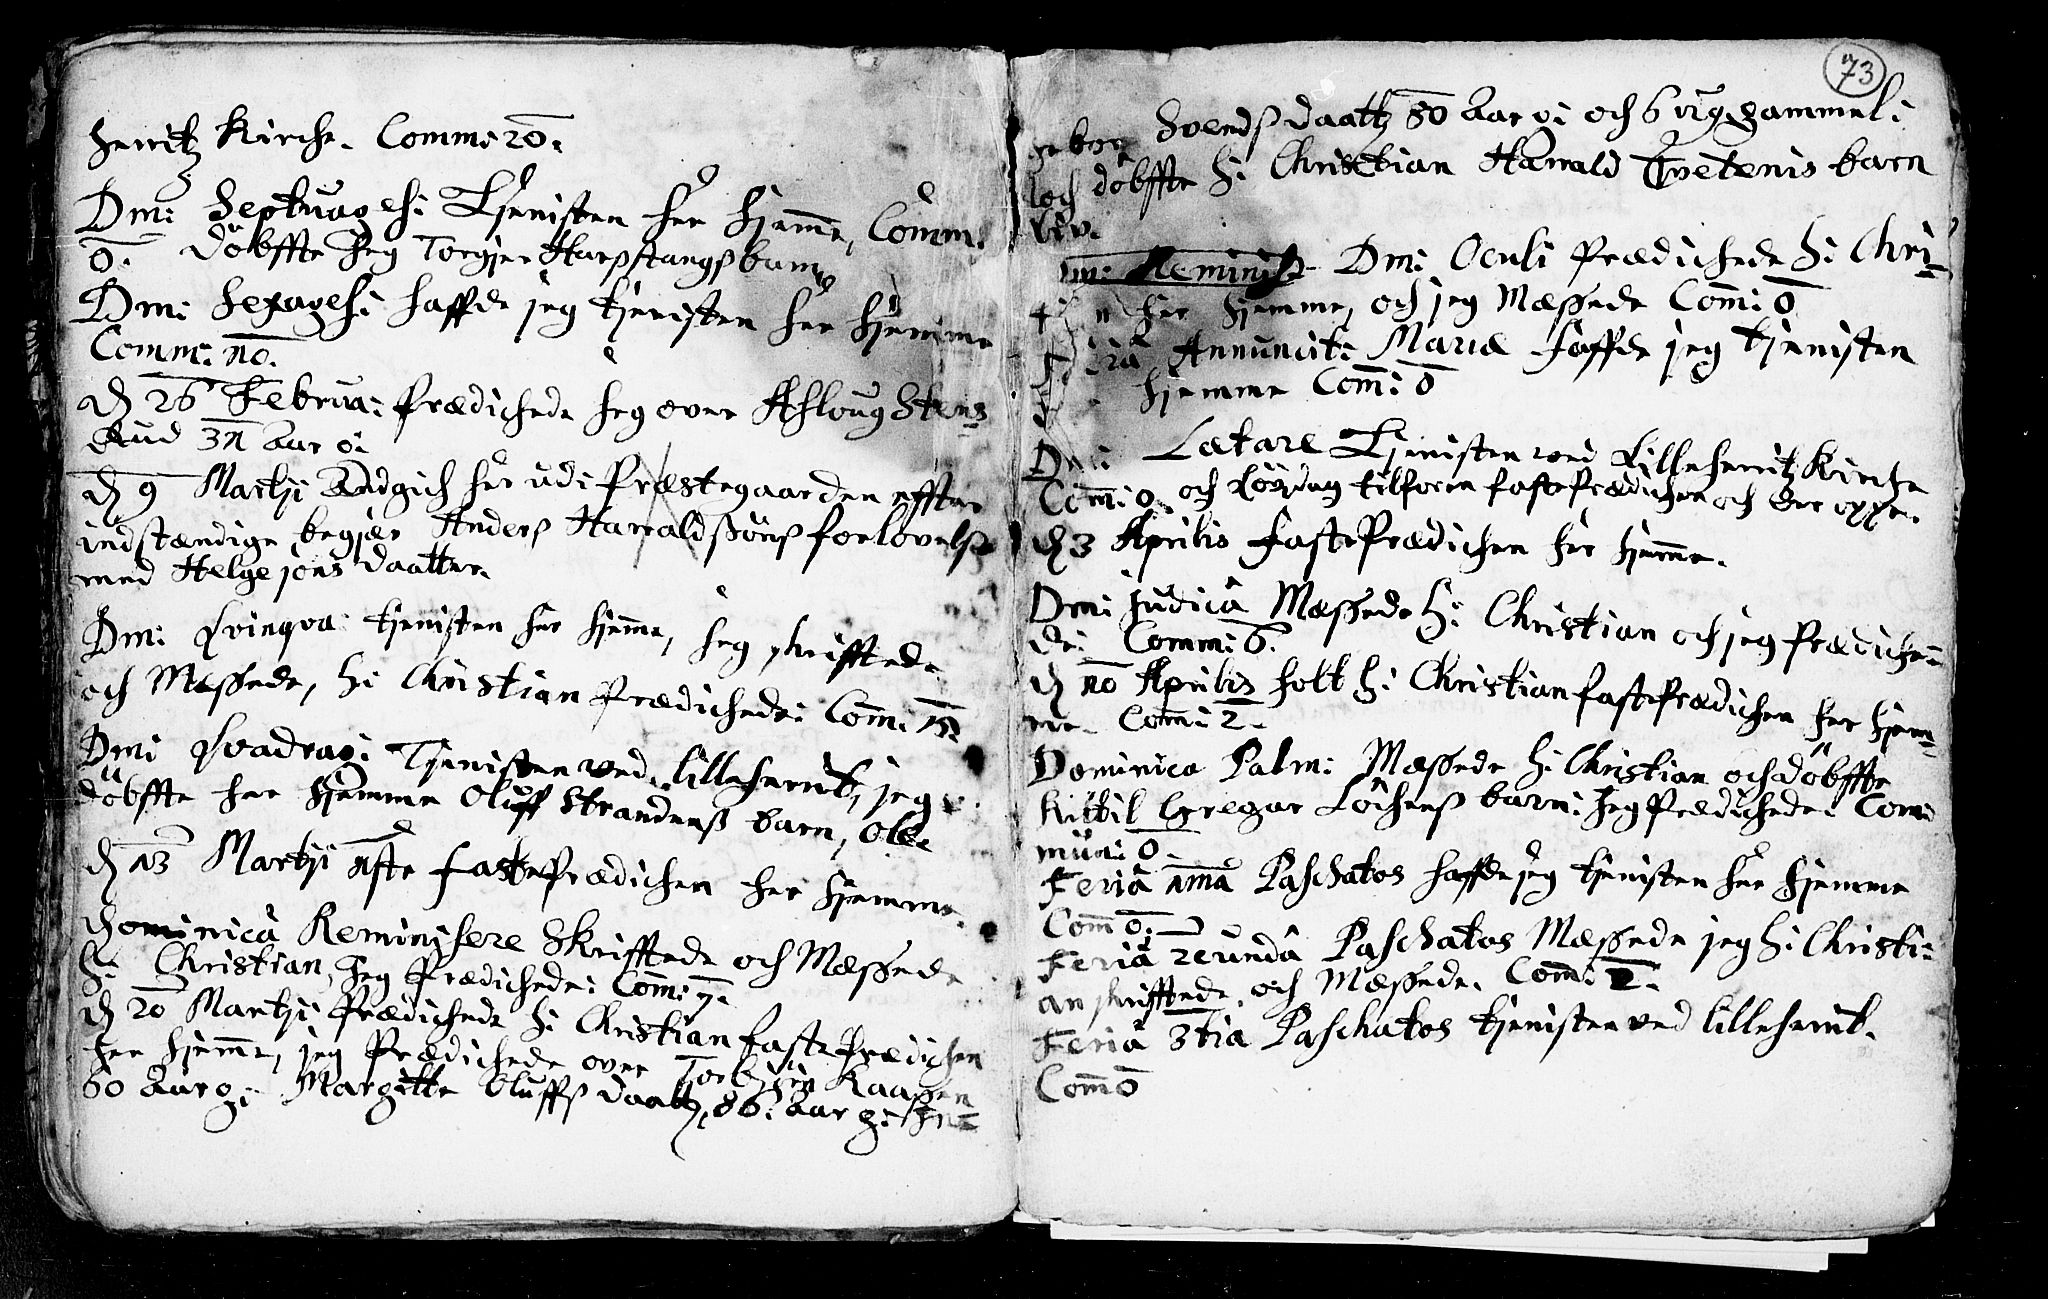 herritz Kirche. Comm: 20.
Dm: Septuages: Tjenisten her hjeme, Comm:
0. döbffte Jeg Torgjer Harßstangß barn
Dm: Sexages: haffde jeg tjenisten her hjemme
Comm: 10.
d 26 Februa: Prædichede Jeg over Aßloug Stens
Rud 31 Aar o:
d 9 Martji Andgich her udi Præstegaarden effter
indstændige begjær Anderß Harraldßönß forlovelse
med Helge jons daatter.
Dm: Qvinqva: tjenisten her hjeme, Jeg skrifftede
och Messede, H: Christian Prædichede: Com: 15.
Dm: Qvadrag: Tjenisten ved lilleherrit, jeg
döbffte her hjemme Oluff Strandenß barn, Ole.
d 13 Martji 1ste fastePrædichen her hjemme.
Dominica Reminisere Skrifftede och Messede
H: Christian, Jeg Prædichede: Com: 7.
d 20 Martji Prædichede H: Christian faste Prædichen
her hjeme, jeg Prædichede over Torbjörn Kaaßen
60 Aar g: Margitte Oluffß daatt, 86. Aar g: In-
geborg Svendß daatt 80 Aar o: och 6 ug. gammel:
och döbffte H: Christian Harrald Tvetenis barn
Liv.
Dm: Reminis Dm: Oculi Prædichede H: Chri-
tian her hjemme, och jeg Messede Com: 0
Feria Annuncit: Mariæ haffde jeg tjenisten
hjemme Com: 0
Dm: Lætare Tjenisten ved Lilleherritz Kirche
Com: 0. och Löverdag tilforn fastePrædichen och der oppe.
d 3 Aprilis fastePrædichen her hjeme.
Dm: Judica Messede H: Christian och jeg Prædiche-
de: Comm: 6.
d 10 Aprilis holt H: Christian fastePrædichen her hjem-
me. Com: 2.
Dominica Palm: Messede H: Christian och döbffte
Kittil Gregar Löchenß barn: Jeg Prædichede. Com
mun: 0.
Feria 1ma Paschatos haffde jeg tjenisten her hjemme
Com 0.
Feria 2cunda Paschatos Messede jeg H: Christi-
an skrifftede, och Messede. Com: 2.
Feria 3tia Paschatos tjenisten ved lilleherrit.
Com 0
73